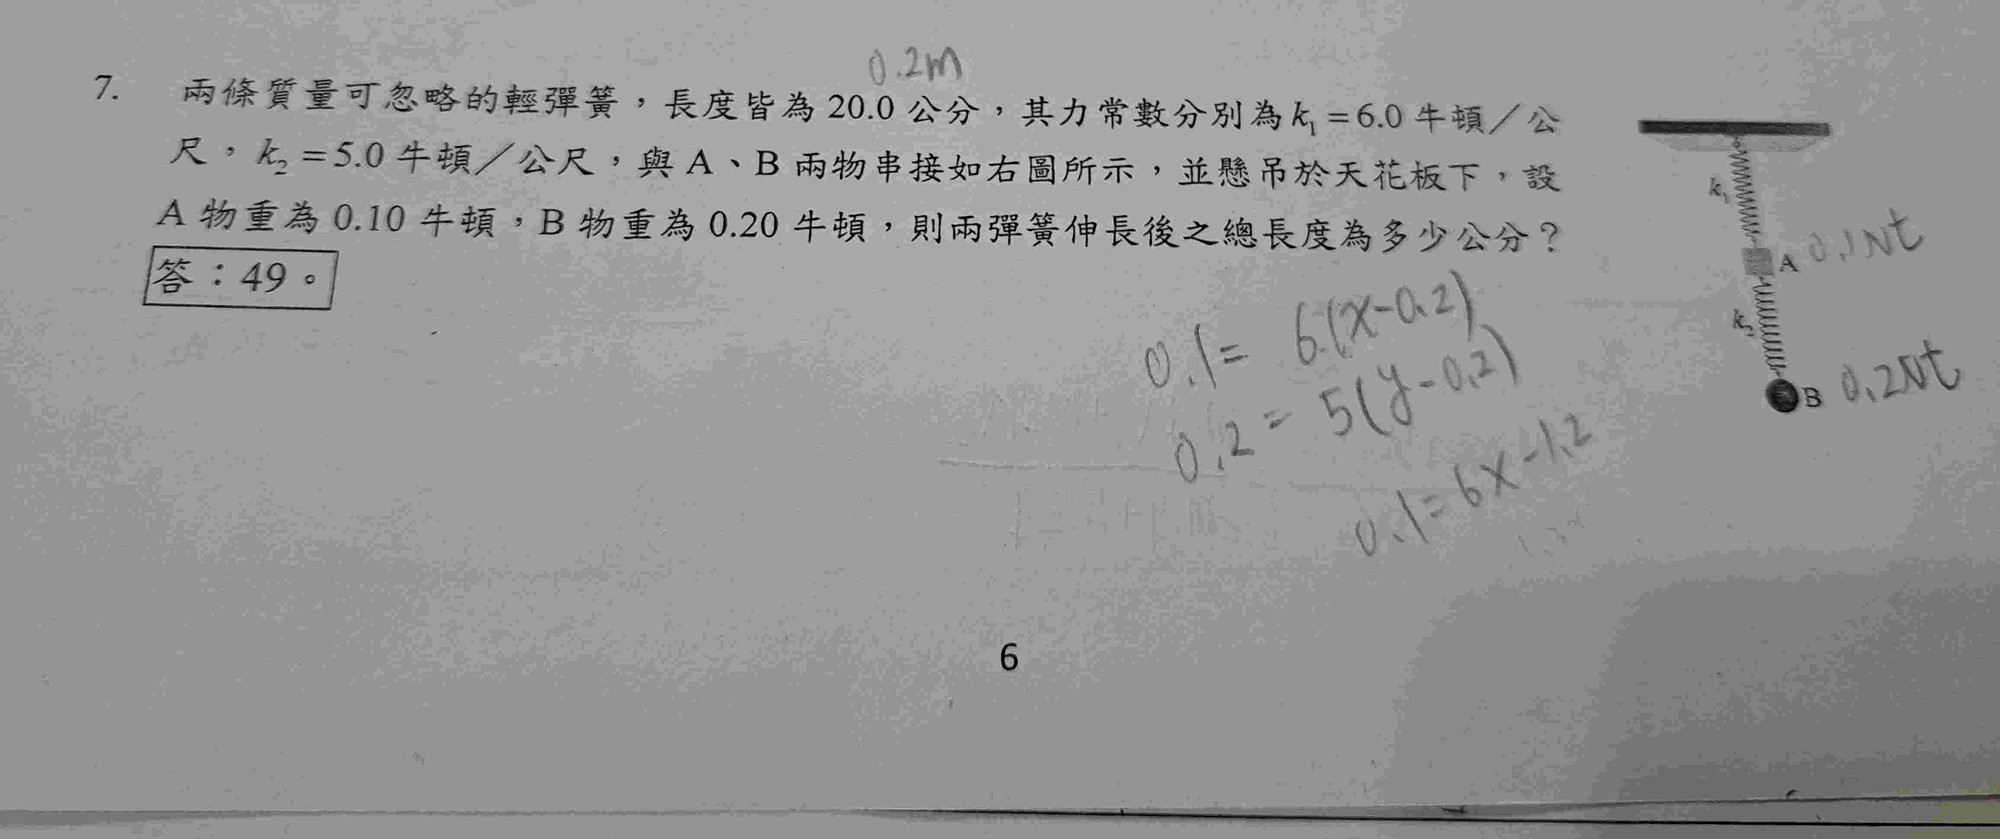 0.2m
7. 兩條質量可忽略的輕彈簧，長度皆為 20.0 公分，其力常數分別為 k₁ = 6.0 牛頓／公
尺，k₂ = 5.0 牛頓／公尺，與 A、B 兩物串接如右圖所示，並懸吊於天花板下，設
A 物重為 0.10 牛頓，B 物重為 0.20 牛頓，則兩彈簧伸長後之總長度為多少公分？
答：49。
k₁
A 0.1Nt
k₂
B 0.2Nt
0.1 = 6(x-0.2)
0.2 = 5(y-0.2)
0.1 = 6x-1.2
6